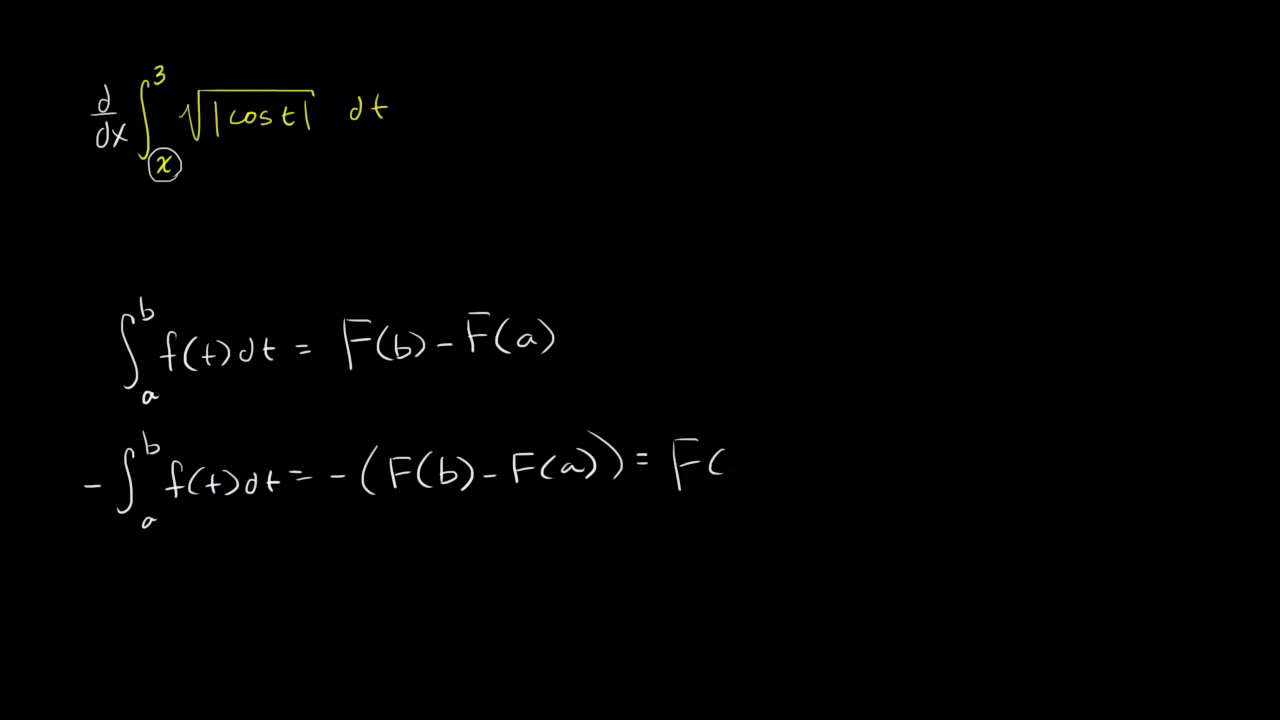 d/dx ∫_x^3 √|cos t| dt
∫_a^b f(t)dt = F(b) - F(a)
- ∫_a^b f(t)dt = - (F(b) - F(a)) = F(